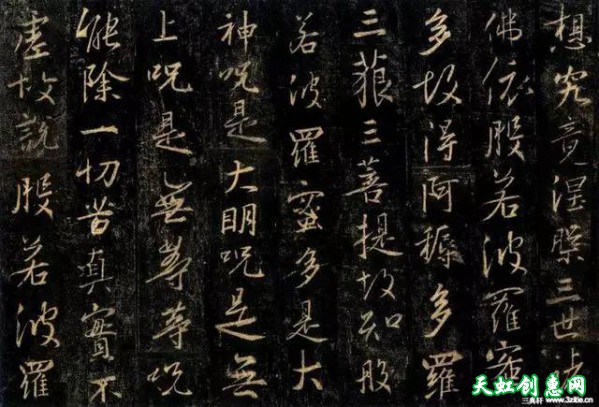 想究竟涅槃三世諸
佛依般若波羅蜜
多故得阿耨多羅
三藐三菩提故知般
若波羅蜜多是大
神呪是大明呪是無
上呪是無等等呪
能除一切苦真實不
虛故說般若波羅
天虹创意网
www.3zitie.cn